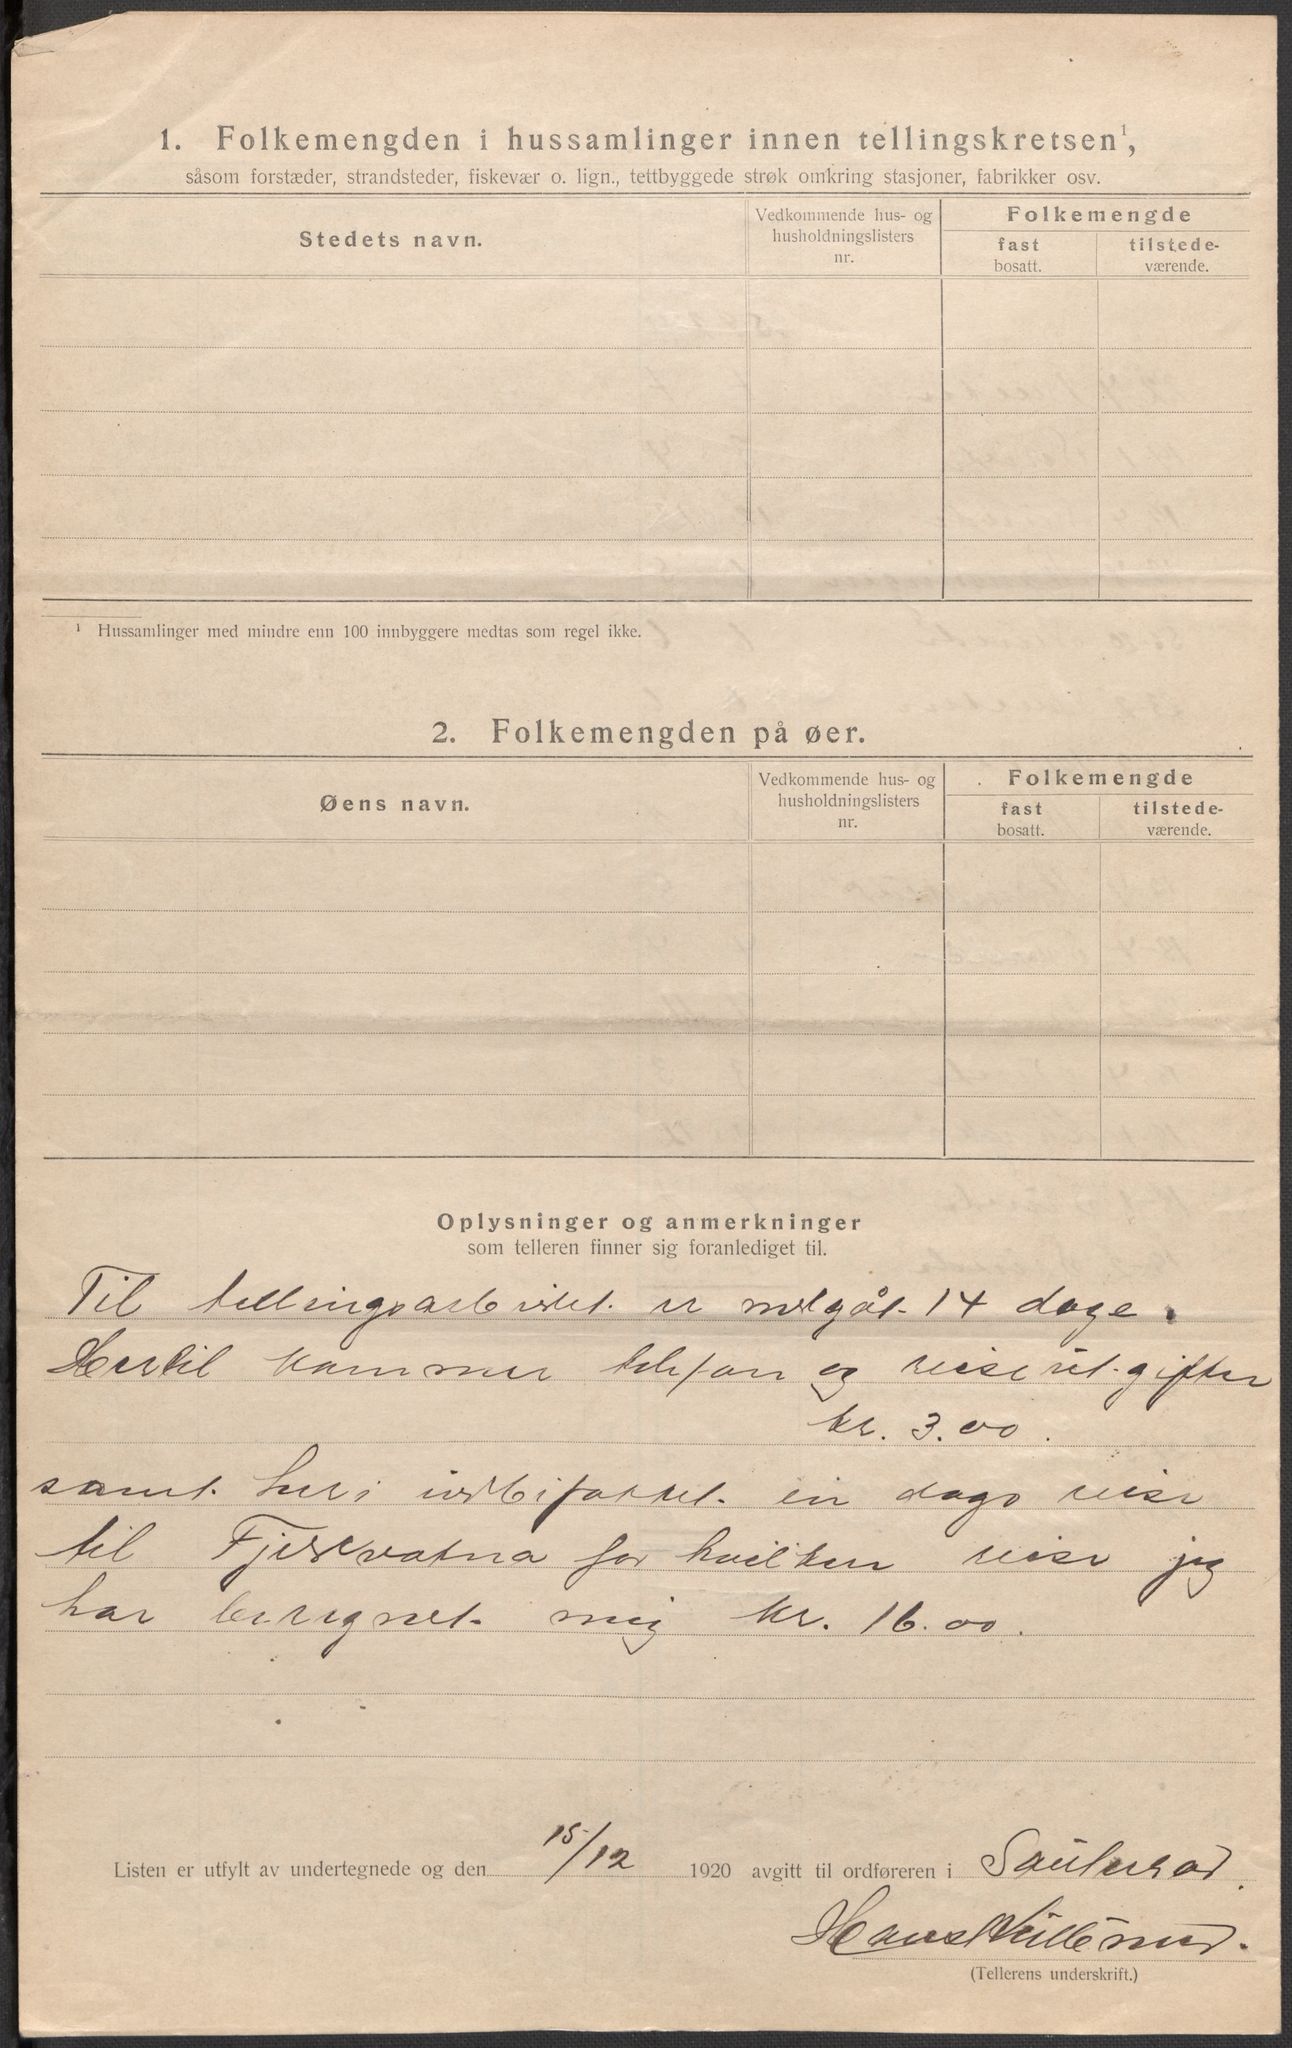 1. Folkemengden i hussamlinger innen tellingskretsen¹,
såsom forstæder, strandsteder, fiskevær o. lign., tettbyggede strøk omkring stasjoner, fabrikker osv.
Stedets navn.
Vedkommende hus- og husholdningslisters nr.
Folkemengde
fast bosatt.
tilstede-værende.
¹ Hussamlinger med mindre enn 100 innbyggere medtas som regel ikke.
2. Folkemengden på øer.
Øens navn.
Vedkommende hus- og husholdningslisters nr.
Folkemengde
fast bosatt.
tilstede-værende.
Oplysninger og anmerkninger
som telleren finner sig foranlediget til.
Til tellingsarbeidet er medgåt 14 dage.
Hertil kommer telefon og reiseutgifter
kr. 3.00.
samt heri indbefattet en dags reise
til Fjervatna for hvilken reise jeg
har beregnet mig kr. 16.00.
Listen er utfylt av undertegnede og den 15/12 1920 avgitt til ordføreren i Sauherad.
Hans
(Tellerens underskrift.)